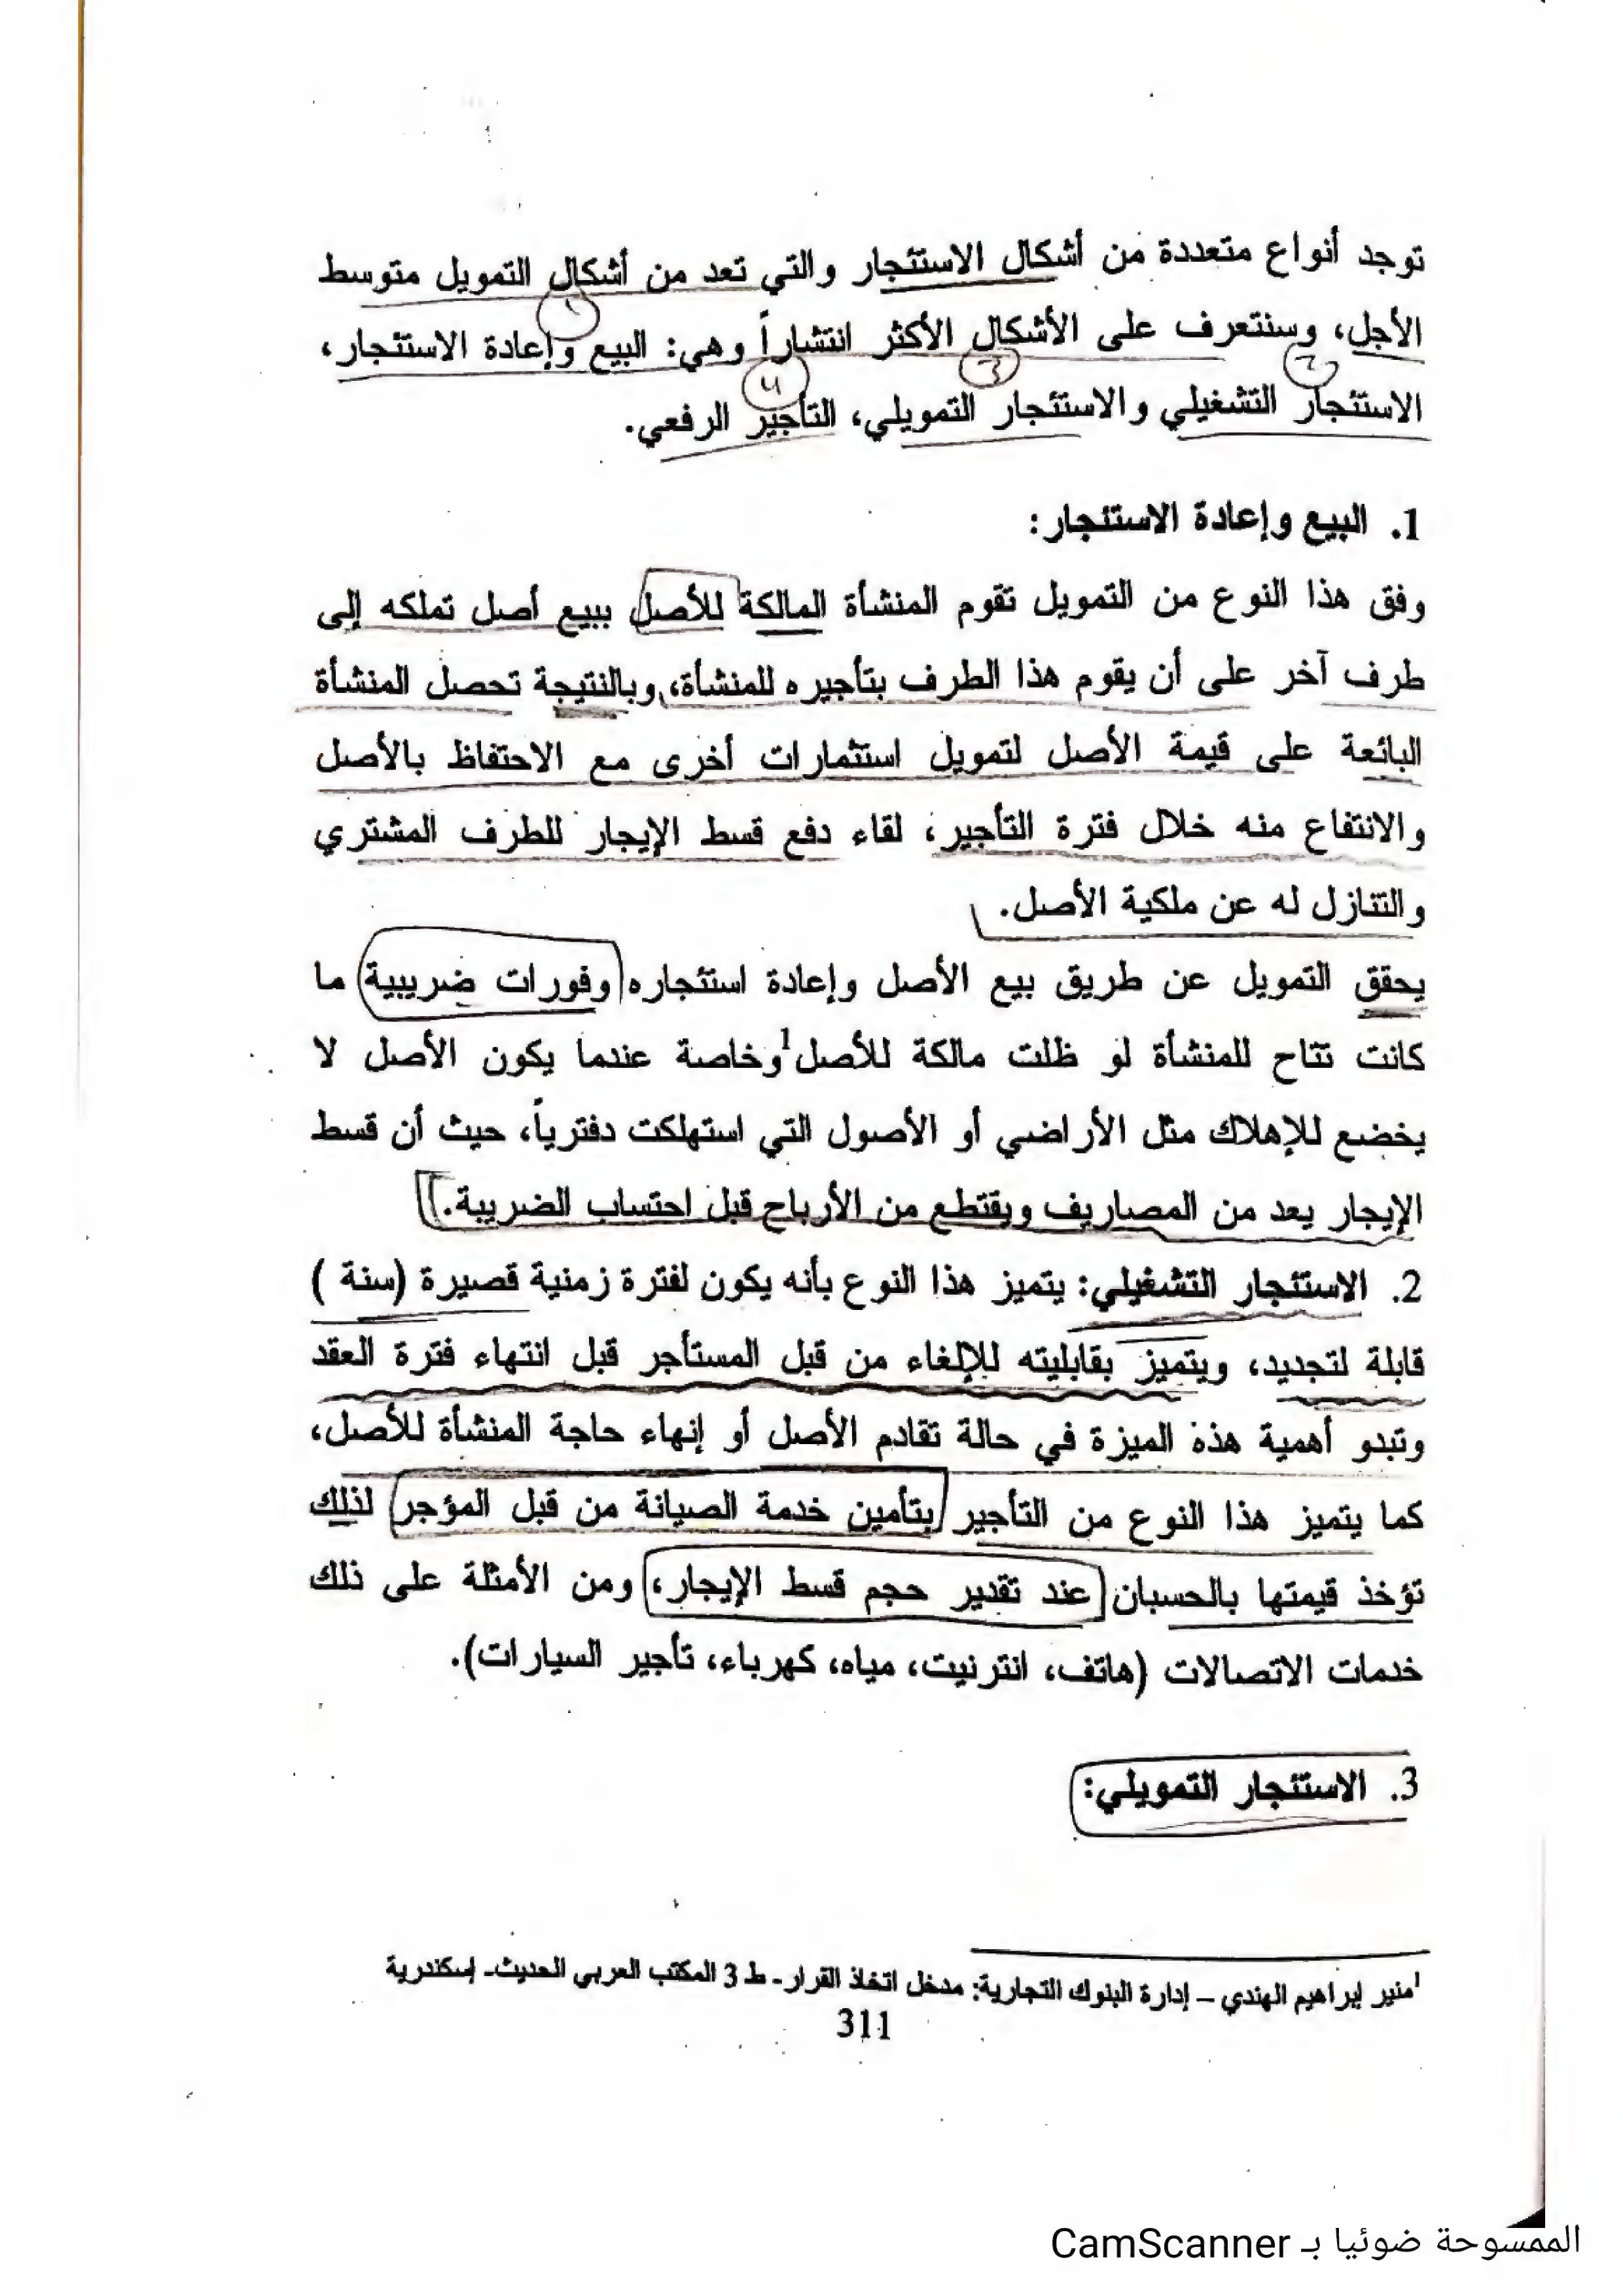 توجد أنواع متعددة من أشكال الاستئجار والتي تعد من أشكال التمويل متوسط
الأجل، وسنتعرف على الأشكال الأكثر انتشاراً وهي: البيع وإعادة الاستئجار،
الاستئجار التشغيلي والاستئجار التمويلي، التأجير الرفعي.
1. البيع وإعادة الاستئجار:
وفق هذا النوع من التمويل تقوم المنشأة المالكة للأصل ببيع أصل تملكه إلى
طرف آخر على أن يقوم هذا الطرف بتأجيره للمنشأة، وبالنتيجة تحصل المنشأة
البائعة على قيمة الأصل لتمويل استثمارات أخرى مع الاحتفاظ بالأصل
والانتفاع منه خلال فترة التأجير، لقاء دفع قسط الإيجار للطرف المشتري
والتنازل له عن ملكية الأصل.
يحقق التمويل عن طريق بيع الأصل وإعادة استئجاره وفورات ضريبية ما
كانت تتاح للمنشأة لو ظلت مالكة للأصل1 وخاصة عندما يكون الأصل لا
يخضع للإهلاك مثل الأراضي أو الأصول التي استهلكت دفترياً، حيث أن قسط
الإيجار يعد من المصاريف ويقتطع من الأرباح قبل احتساب الضريبة.
2. الاستئجار التشغيلي: يتميز هذا النوع بأنه يكون لفترة زمنية قصيرة (سنة )
قابلة لتجديد، ويتميز بقابليته للإلغاء من قبل المستأجر قبل انتهاء فترة العقد
وتبدو أهمية هذه الميزة في حالة تقادم الأصل أو إنهاء حاجة المنشأة للأصل،
كما يتميز هذا النوع من التأجير بتأمين خدمة الصيانة من قبل المؤجر لذلك
تؤخذ قيمتها بالحسبان عند تقدير حجم قسط الإيجار، ومن الأمثلة على ذلك
خدمات الاتصالات (هاتف، انترنيت، مياه، كهرباء، تأجير السيارات).
3. الاستئجار التمويلي:
1منير إبراهيم الهندي – إدارة البنوك التجارية: مدخل اتخاذ القرار- ط 3 المكتب العربي الحديث- إسكندرية
311
الممسوحة ضوئيا بـ CamScanner